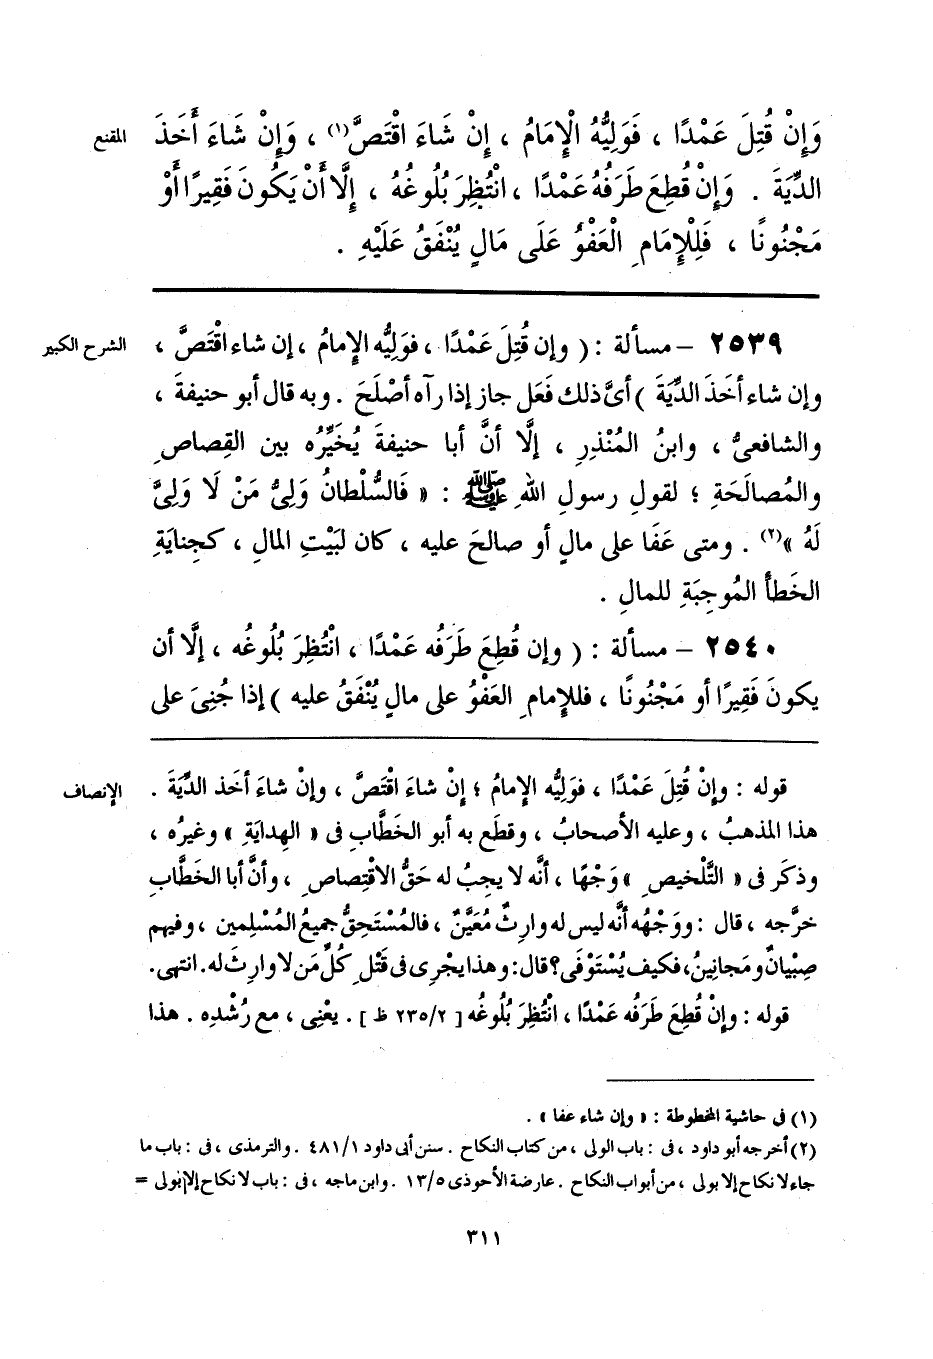 المقنع
وَإِنْ قُتِلَ عَمْدًا ، فَوَلِيُّهُ الْإِمَامُ ، إِنْ شَاءَ اقْتَصَّ(١) ، وَإِنْ شَاءَ أَخَذَ
الدِّيَةَ . وَإِنْ قُطِعَ طَرَفُهُ عَمْدًا ، انْتُظِرَ بُلُوغُهُ ، إِلَّا أَنْ يَكُونَ فَقِيرًا أَوْ
مَجْنُونًا ، فَلِلْإِمَامِ الْعَفْوُ عَلَى مَالٍ يُنْفَقُ عَلَيْهِ .
الشرح الكبير
٢٥٣٩ – مسألة : ( وإن قُتِلَ عَمْدًا ، فوَلِيُّه الإِمامُ ، إن شاء اقْتَصَّ ،
وإن شاء أخَذَ الدِّيَةَ ) أىَّ ذلك فَعَل جاز إذا رآه أصْلَحَ . وبه قال أبو حنيفةَ ،
والشافعىُّ ، وابنُ المُنْذِرِ ، إلَّا أنَّ أبا حنيفةَ يُخَيِّرُه بين القِصاصِ
والمُصالَحَةِ ؛ لقولِ رسولِ اللهِ ﷺ : « فَالسُّلْطانُ وَلِىُّ مَنْ لَا وَلِىَّ
لَهُ »(٢) . ومتى عَفَا على مالٍ أو صالحَ عليه ، كان لبَيْتِ المالِ ، كجِنايَةِ
الخَطأ المُوجِبَةِ للمالِ .
٢٥٤٠ – مسألة : ( وإن قُطِعَ طَرَفُه عَمْدًا ، انْتُظِرَ بُلُوغُه ، إلَّا أن
يكونَ فَقِيرًا أو مَجْنُونًا ، فللإِمامِ العَفْوُ على مالٍ يُنْفَقُ عليه ) إذا جُنِىَ على
الإنصاف
قوله : وإنْ قُتِلَ عَمْدًا ، فوَلِيُّه الإِمامُ ؛ إنْ شاءَ اقْتَصَّ ، وإنْ شاءَ أخَذ الدِّيَةَ .
هذا المذهبُ ، وعليه الأصحابُ ، وقطَع به أبو الخَطَّابِ فى « الهِدايَةِ » وغيرُه ،
وذكَر فى « التَّلْخيصِ » وَجْهًا ، أنَّه لا يجبُ له حَقُّ الاقْتِصاصِ ، وأنَّ أبا الخَطَّابِ
خرَّجه ، قال : ووَجْهُه أنَّه ليس له وارِثٌ مُعَيَّنٌ ، فالمُسْتَحِقُّ جميعُ المُسْلِمين ، وفيهم
صِبْيانٌ ومَجانِينُ، فكيف يُسْتَوْفَى؟ قال: وهذا يجْرِى فى قَتْلِ كُلِّ مَن لا وارِثَ له. انتهى.
قوله : وإنْ قُطِعَ طَرَفُه عَمْدًا ، انْتُظِرَ بُلُوغُه [ ٢٣٥/٢ ظ ] . يعْنِى ، مع رُشْدِه . هذا
(١) فى حاشية المخطوطة : « وإن شاء عفا » .
(٢) أخرجه أبو داود ، فى : باب الولى ، من كتاب النكاح . سنن أبى داود ٤٨١/١ . والترمذى ، فى : باب ما
جاء لا نكاح إلا بولى ، من أبواب النكاح . عارضة الأحوذى ١٣/٥ . وابن ماجه ، فى : باب لا نكاح إلا بولى =
٣١١